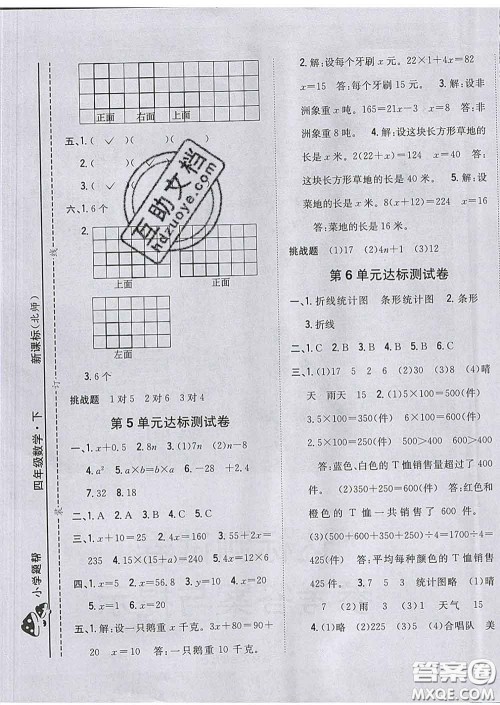 正面 右面 上面
五、1.( ✓ )( )( )
2.( )( )( ✓ )
3.( ✓ )( )( )
六、1.6个
2.
正面 上面
左面
3.6个
挑战题 1对5 2对6 3对4
第5单元达标测试卷
一、1.x+0.5 2.8n 3.(1)7n (2)n-8
4.a² 2a 5.m×b=b×m 6.11
7.32 8.18
二、1.A 2.A 3.B 4.B 5.C
三、1.x+10=25 2.4x=100 3.2x+55=
235 4.15×(15+a) 5.24x+12x=360
四、1.x=2 2.x=56.8 3.y=10 4.x=
20 5.x=10 6.x=2
五、1.解:设一只鹅重x千克。3x+80=90+
20 x=10 答:一只鹅重10千克。
2.解:设每个牙刷x元。22×1+4x=82
x=15 答:每个牙刷15元。3.解:设非
洲象重x吨。165=21x-3 x=8 答:非
洲象重8吨。4.解:设这块长方形草地的
长是x米。2(22+x)=124 x=40 答:
这块长方形草地的长是40米。5.解:设
菜地的长是x米。8x=128 x=16
答:菜地的长是16米。
挑战题 (1)17 (2)4n+1 (3)12
第6单元达标测试卷
一、1.折线统计图 条形统计图 2.条形
3.折线
二、1.C 2.B 3.B 4.C 5.C
三、1.15 6 2.(1)7 (2)27 (3)(8)晴
天 雨天 15 3.(1)5×100=500(件)
2.5×100=250(件) 6×100=600(件)
3.5×100=350(件) 500+600>350+
250 答:蓝色、白色的T恤销售量超过了
(2)350+250=600(件) 答:红色和
橙色的T恤一共销售了600件。
(3)(500+600+350+250)÷4=1700÷4=
425(件) 答:平均每种颜色的T恤销售
425件。4.3 7 5 3 统计图略 (1)晴
7 (2)雨 3 (3)1 天气 15
5.(1)略 (2)225 (3)5 (4)合唱队 美
小学题帮 四年级数学·下 新课标(北师)
装 订 线
互助文档
hdzuoye.com
答案圈
MXQE.COM